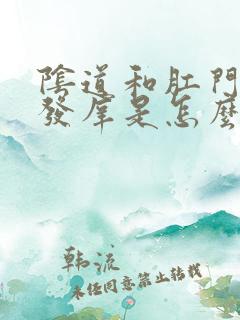 陰道和肛門
發庠是怎麼
韩流
未任同意禁止转载